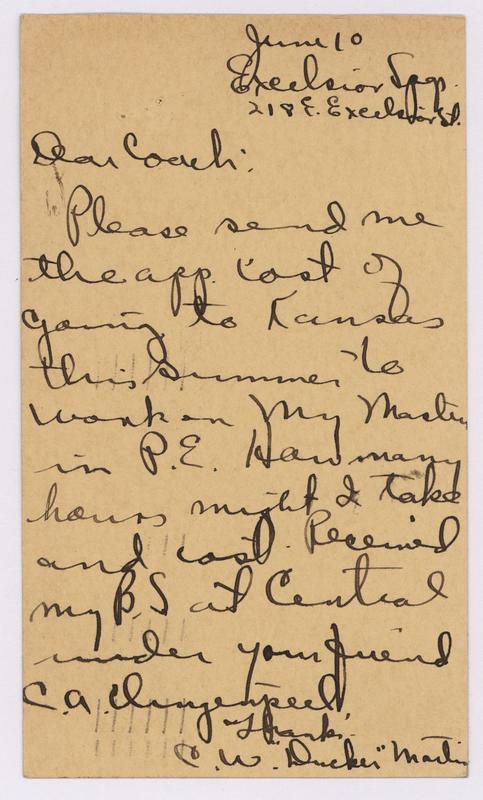 June 10
Excelsior Spgs.
218 E. Excelsior St.
Dear Coach:
Please send me
the app. cost of
going to Kansas
this summer to
work on My Masters
in P.E. How many
hours might I take
and cost. Received
my B.S at Central
under your friend
C.A.
Thanks.
C. W. "Ducker" Martin